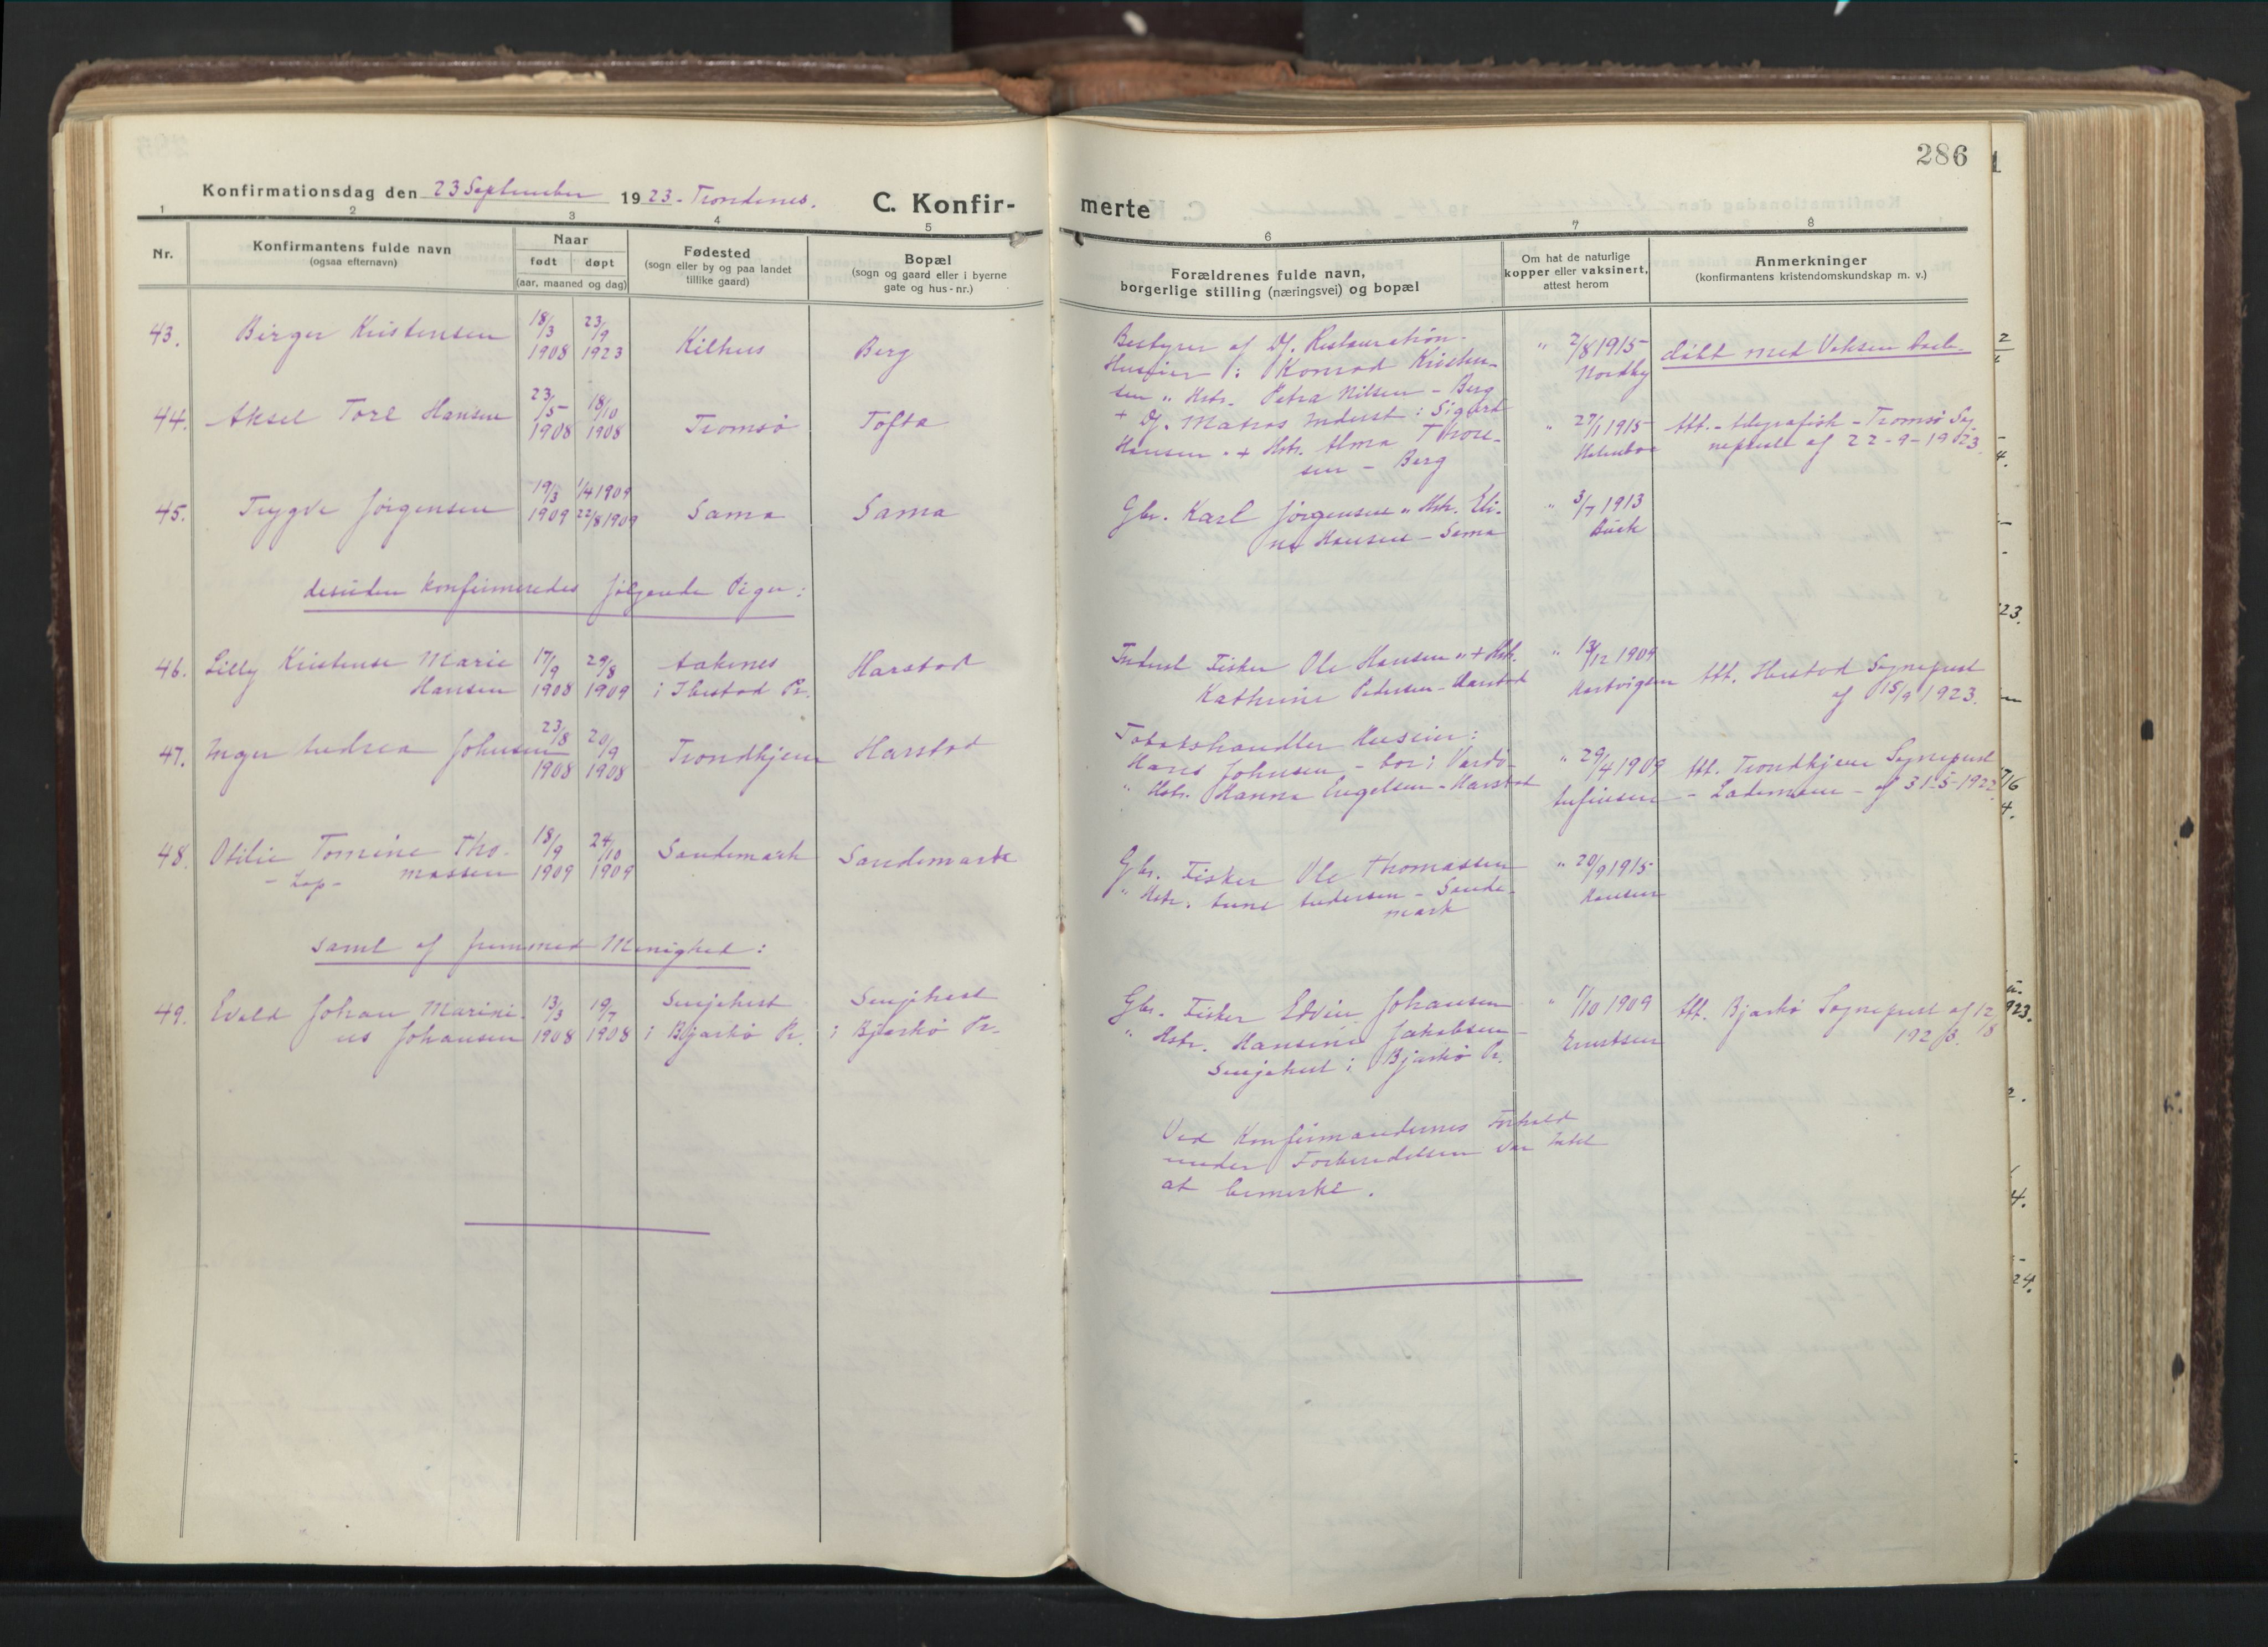 286
Konfirmationsdag den 23 September 1923 - Trondenes.
C. Konfir-
merte
1 2 3 4 5 6 7 8
Nr.
Konfirmantens fulde navn
(ogsaa efternavn)
Naar
født døpt
(aar, maaned og dag)
Fødested
(sogn eller by og paa landet
tillike gaard)
Bopæl
(sogn og gaard eller i byerne
gate og hus-nr.)
Forældrenes fulde navn,
borgerlige stilling (næringsvei) og bopæl
Om hat de naturlige
kopper eller vaksinert,
attest herom
Anmerkninger
(konfirmantens kristendomskundskap m. v.)
43. Birger Kristensen 18/3 1908 23/9 1923 Kilhus Berg
Bestyrer af Df. Restauration
Huseier : Konrad Kristen-
sen " Hstr. Petra Nilsen - Berg
" 2/8 1915
Nordby
døbt med Voksen daab
44. Aksel Tore Hansen 23/5 1908 18/10 1908 Tromsø Tofta
+ Df. Matros Inderst : Sigurd
Hansen . + Hstr. Alma Thore-
sen - Berg
" 27/1 1915
Holmboe
Att. - telegrafisk - Tromsø Sog-
nepræst af 22-9-1923
45. Trygve Jørgensen 19/3 1909 1/4 1909 22/8 1909 Sama Sama
Gbr. Karl Jørgensen " Hstr. Eli-
ne Hansen - Sama
" 3/7 1913
Buck
desuden konfirmeredes følgende Piger:
46. Lilly Kristense Marie
Hansen
17/9 1908 29/8 1909
Aakenes
i Ibestad Pr.
Harstad
Inderst Fisker Ole Hansen " + Hstr.
Kathrine Pedersen - Harstad
" 13/12 1909
Hartvigsen
Att. Ibestad Sognepræst
af 15/9 1923.
47. Inger Andrea Johnsen 23/8 1908 20/9 1908 Trondhjem Harstad
Tobakshandler Huseier:
Hans Johnsen - bor i Vardø -
" Hstr. Hanna Engelsen - Harstad
" 29/4 1909
Att. Trondhjem Sognepræst
- Lademoen - af 31-5-1922
48. Otilie Tomine Tho-
- Lap - massen
18/9 1909 24/10 1909 Sandemark Sandemark
Gbr. Fisker Ole Thomassen
" Hstr. Anne Andersen - Sande-
mark
" 20/9 1915
Hansen
samt af fremmed Menighed:
49. Evald Johan Marini-
us Johansen
13/3 1908 19/7 1908
Senjehest
i Bjarkø Pr.
Senjehest
i Bjarkø Pr.
Gbr. Fisker Edvin Johansen
" Hstr. Hansine Jakobsen -
Senjehest i Bjarkø Pr.
" 1/10 1909
Erntsen
Att. Bjarkø Sognepræst af 12/8
1923.
Ved Konfirmandernes Forhold
under Forberedelsen var intet
at bemerke.